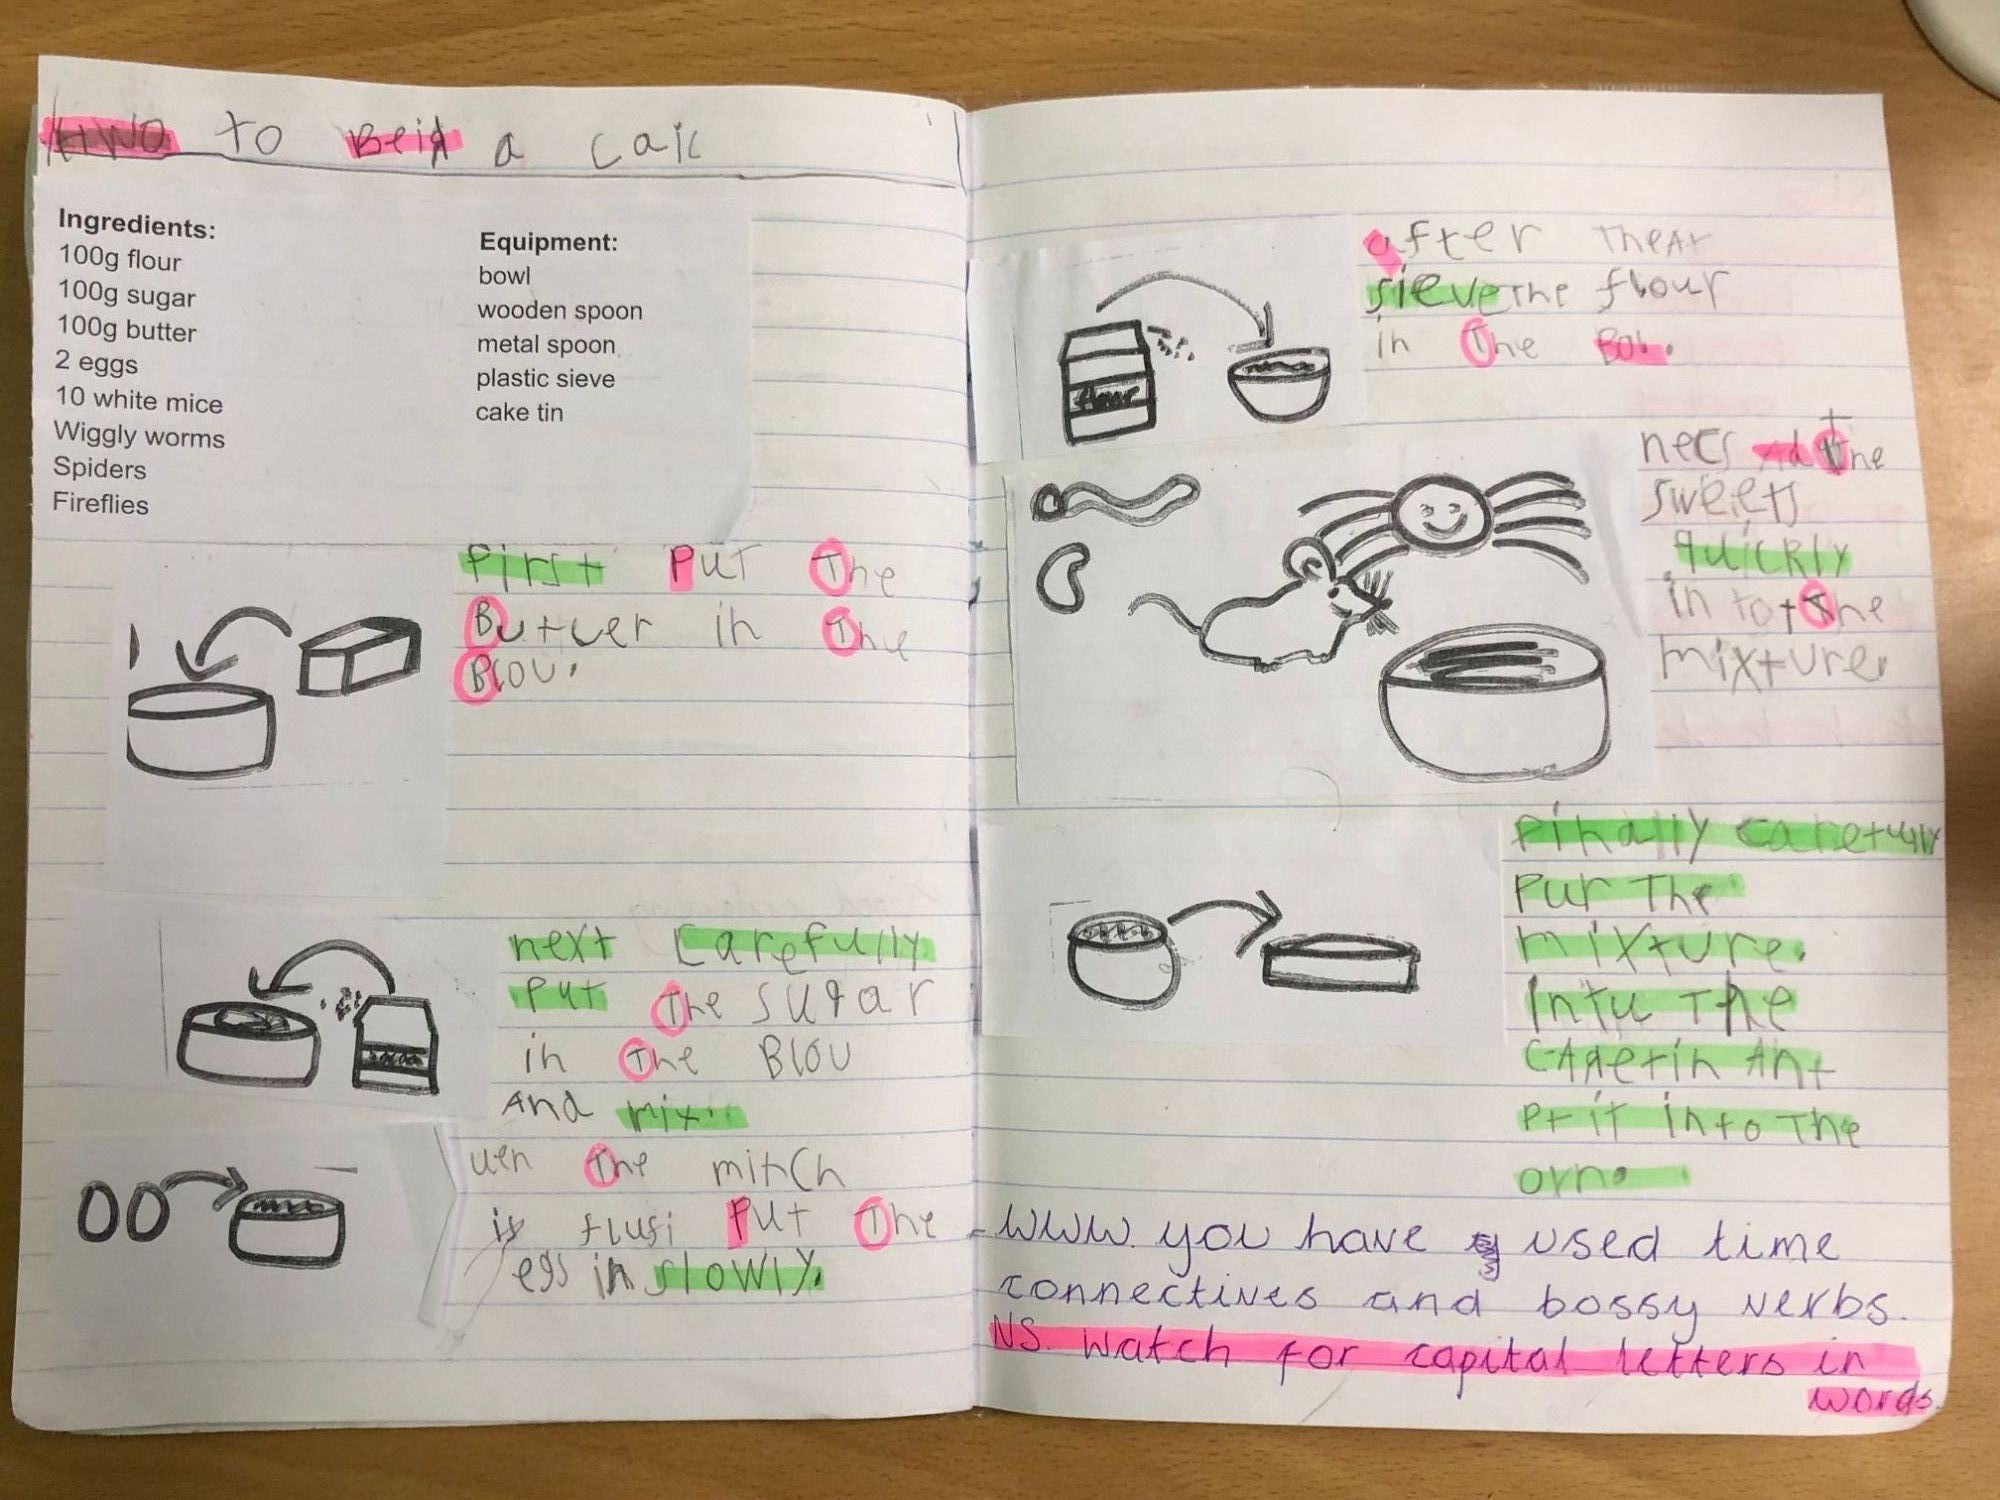 HWO to Beid a caic
Ingredients:
100g flour
100g sugar
100g butter
2 eggs
10 white mice
Wiggly worms
Spiders
Fireflies
Equipment:
bowl
wooden spoon
metal spoon
plastic sieve
cake tin
first Put The
Butuer in The
Blou.
next carefully
put The sugar
in The Blou
And mix.
uen The mihCh
is flusi Put The
egs in slowly.
after theAr
sieve The flour
in The Bol.
flour
necs Ad the
sweets
quickly
in to the
mixture.
Finally carefully
Pur The
mixture.
Intu The
CAgetin Ant
Pt it into The
ovn.
WWW. you have used time
connectives and bossy verbs.
NS. Watch for capital letters in
words.